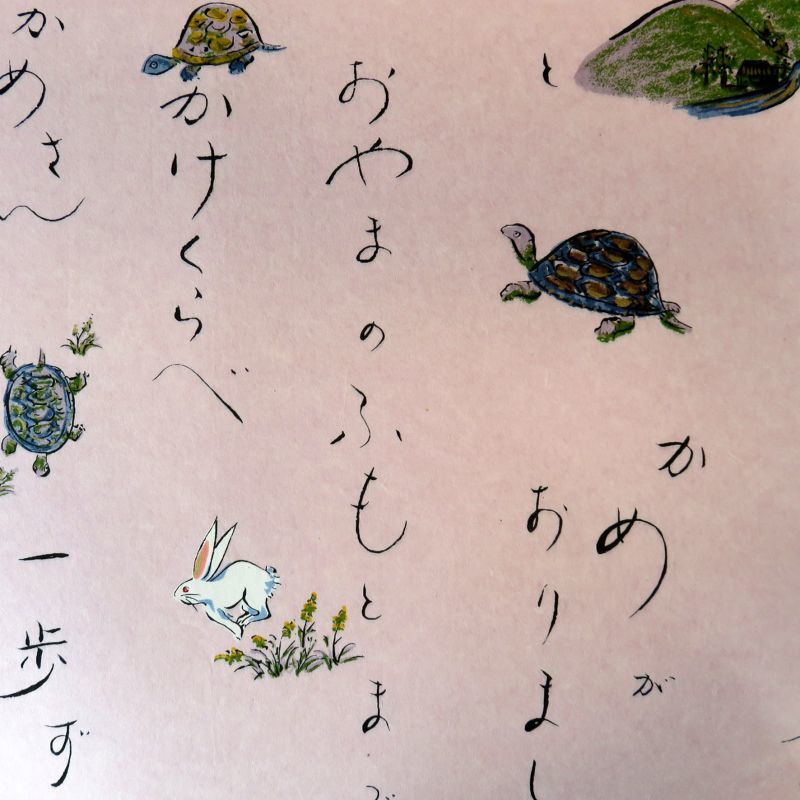 と
かめが
おりまし
おやまのふもとまで
かけくらべ
かめさん
一歩ず